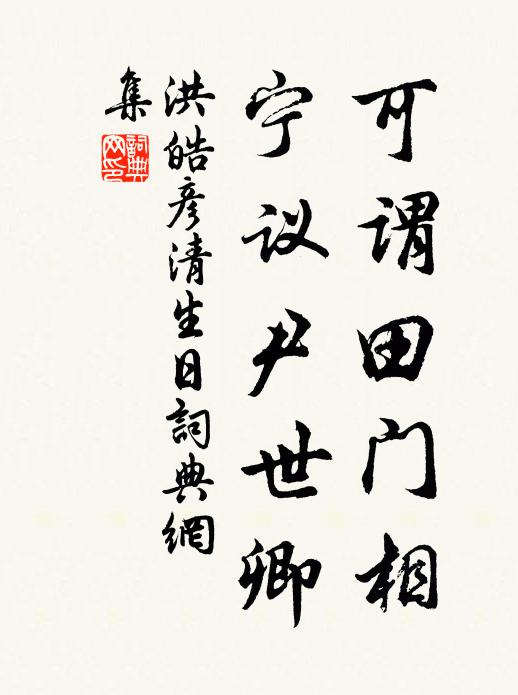 可谓田门相
宁议尹世卿
洪皓彦清生日詞典網
集
詞典网印